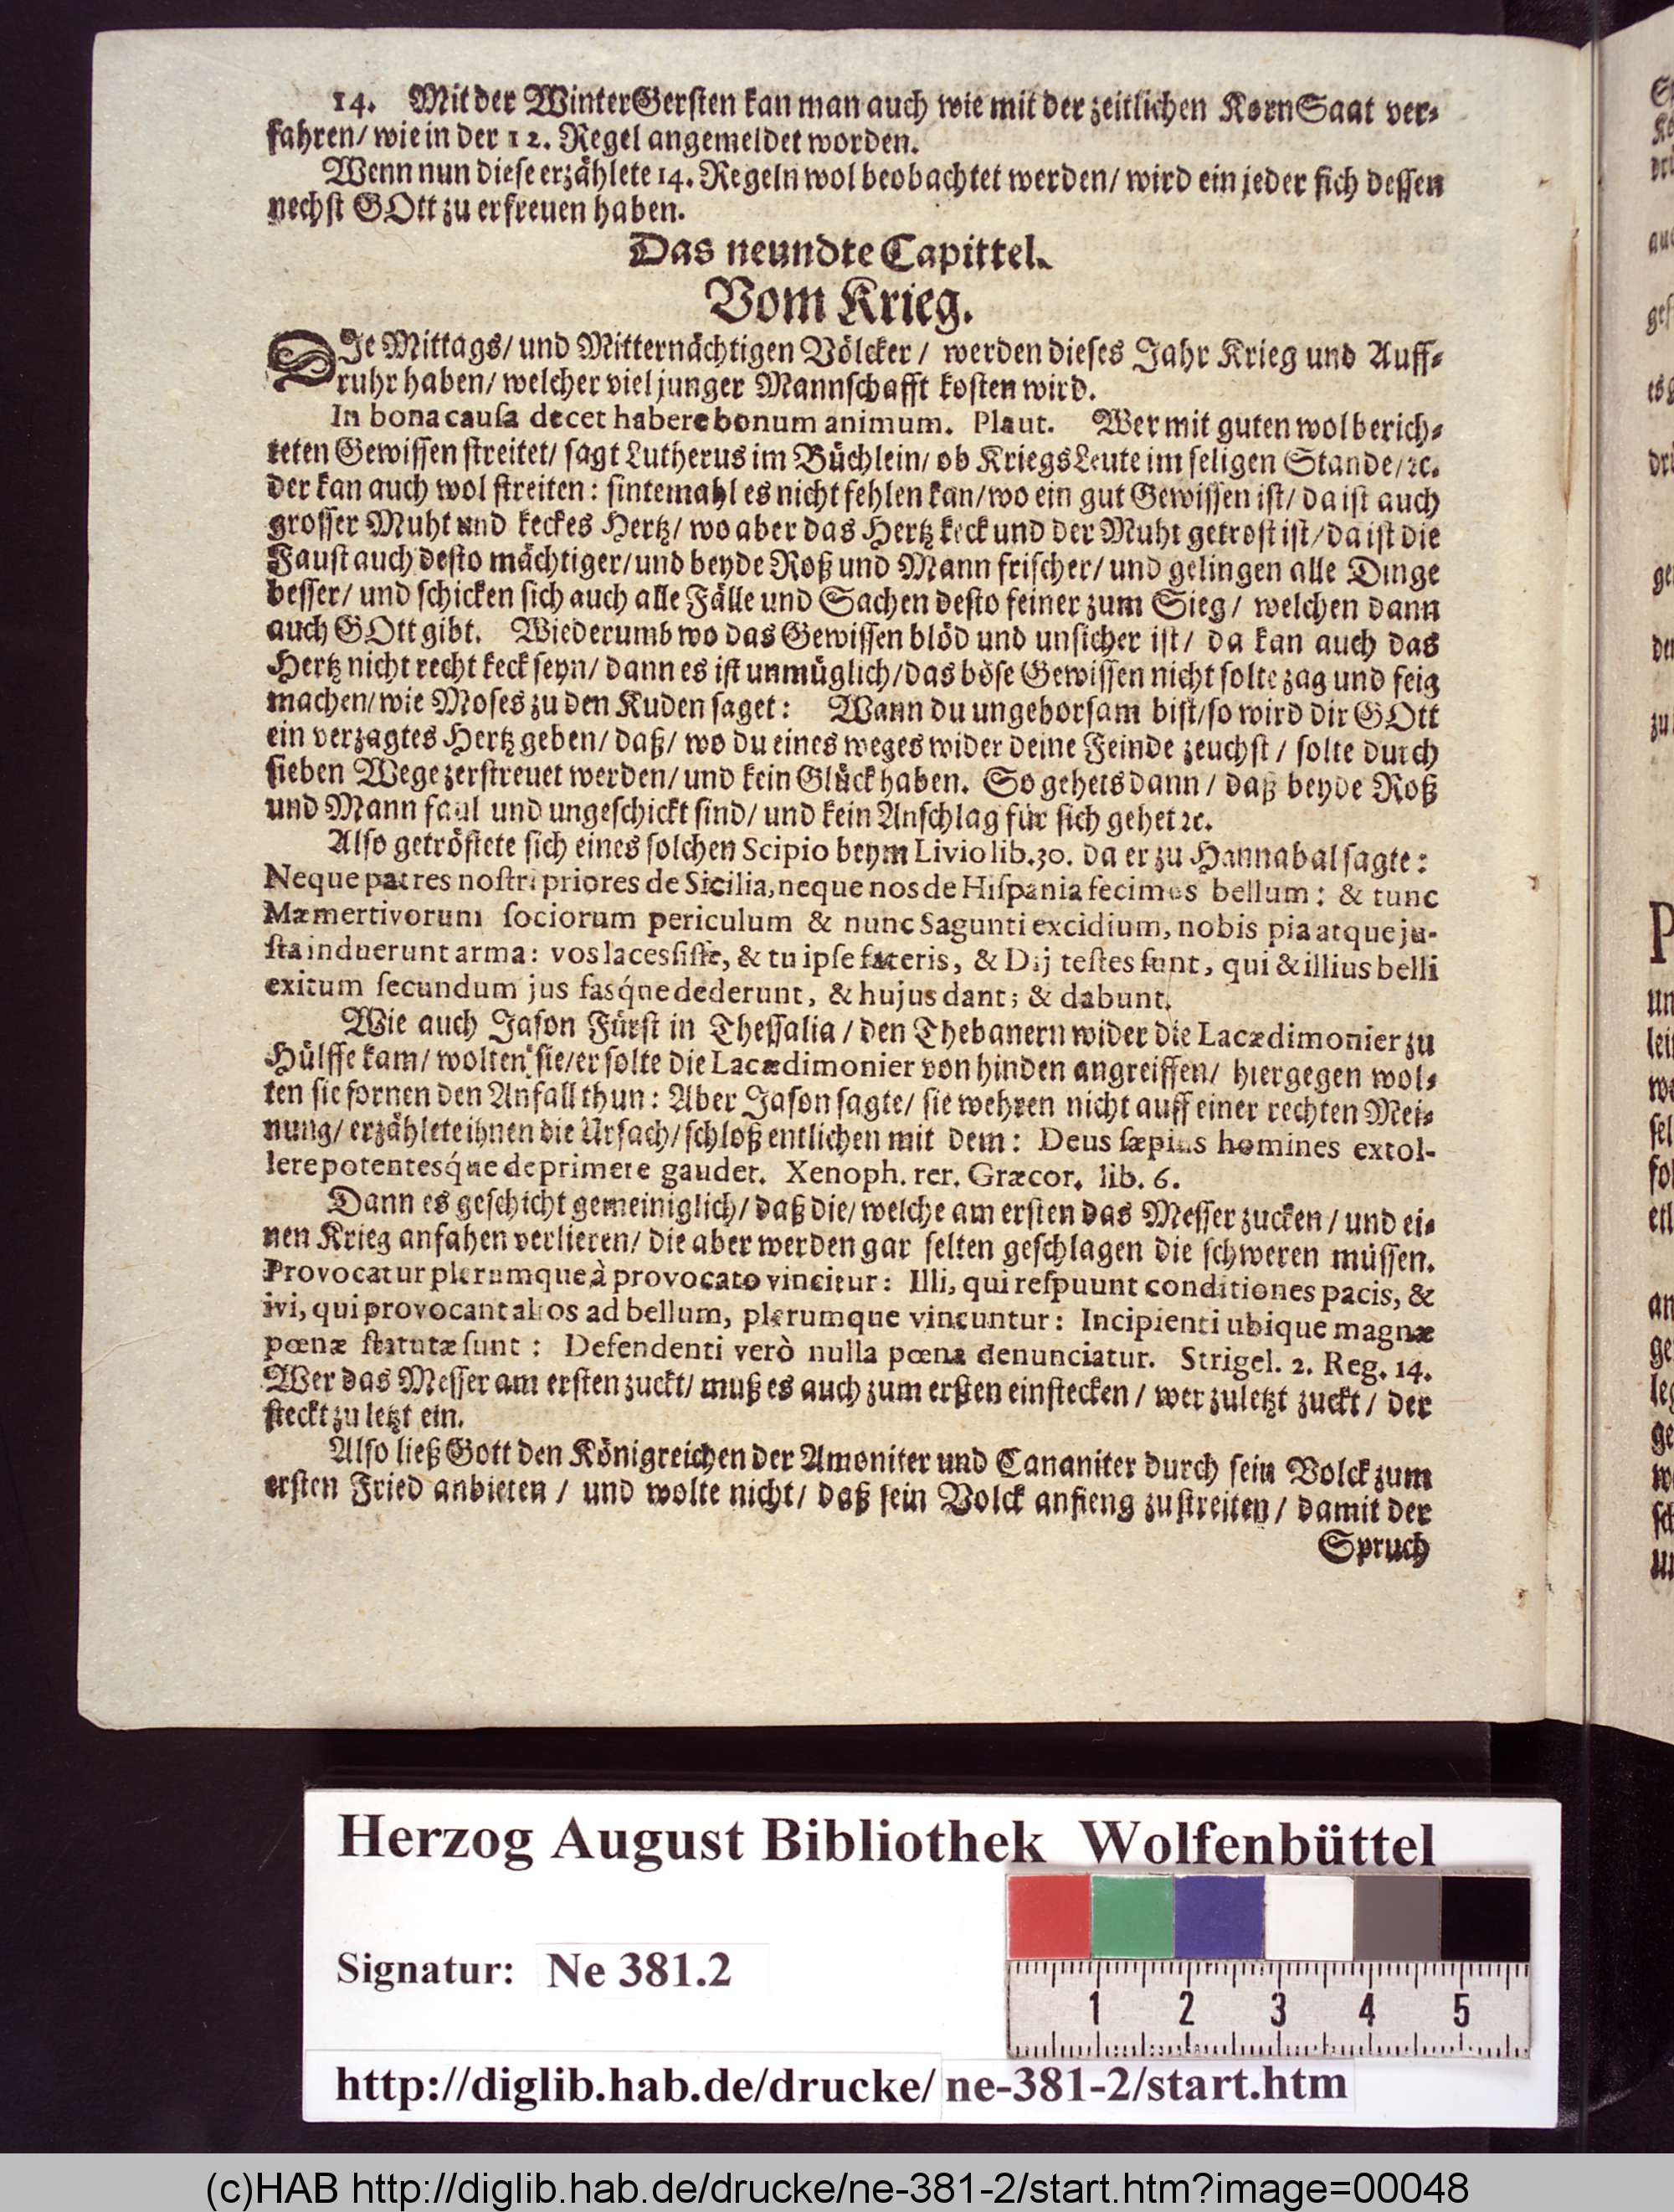 14. Mit der WinterGersten kan man auch wie mit der zeitlichen KornSaat ver-
fahren/ wie in der 12. Regel angemeldet worden.
Wenn nun diese erzählete 14. Regeln wol beobachtet werden/ wird ein jeder sich dessen
nechst GOtt zu erfreuen haben.
Das neundte Capittel.
Vom Krieg.
DIe Mittags/ und Mitternächtigen Völcker / werden dieses Jahr Krieg und Auff-
ruhr haben/ welcher viel junger Mannschafft kosten wird.
In bona causa decet habere bonum animum. Plaut. Wer mit guten wol berich-
teten Gewissen streitet/ sagt Lutherus im Büchlein/ ob KriegsLeute im seligen Stande/ ꝛc.
der kan auch wol streiten: sintemahl es nicht fehlen kan/ wo ein gut Gewissen ist/ da ist auch
grosser Muht und keckes Hertz/ wo aber das Hertz keck und der Muht getrost ist/ da ist die
Faust auch desto mächtiger/ und beyde Roß und Mann frischer/ und gelingen alle Dinge
besser/ und schicken sich auch alle Fälle und Sachen desto feiner zum Sieg / welchen dann
auch GOtt gibt. Wiederumb wo das Gewissen blöd und unsicher ist/ da kan auch das
Hertz nicht recht keck seyn/ dann es ist unmüglich/ das böse Gewissen nicht solte zag und feig
machen/ wie Moses zu den Kuden saget: Wann du ungehorsam bist/ so wird dir GOtt
ein verzagtes Hertz geben/ daß/ wo du eines weges wider deine Feinde zeuchst / solte durch
sieben Wege zerstreuet werden/ und kein Glück haben. So gehets dann / daß beyde Roß
und Mann faul und ungeschickt sind/ und kein Anschlag für sich gehet ꝛc.
Also getröstete sich eines solchen Scipio beym Livio lib. 30. da er zu Hannabal sagte:
Neque patres nostri priores de Sicilia, neque nos de Hispania fecimus bellum: & tunc
Mæmertivorum sociorum periculum & nunc Sagunti excidium, nobis pia atque ju-
sta induerunt arma: vos lacessisse, & tu ipse fateris, & Dij testes sunt, qui & illius belli
exitum secundum jus fasq́ne dederunt, & hujus dant; & dabunt.
Wie auch Jason Fürst in Thessalia / den Thebanern wider die Lacædimonier zu
Hülffe kam/ wolten sie/ er solte die Lacædimonier von hinden angreiffen/ hiergegen wol-
ten sie fornen den Anfall thun: Aber Jason sagte/ sie wehren nicht auff einer rechten Mei-
nung/ erzählete ihnen die Ursach/ schloß entlichen mit dem: Deus sæpius homines extol-
lere potentesq́ne deprimere gaudet. Xenoph. rer. Græcor. lib. 6.
Dann es geschicht gemeiniglich/ daß die/ welche am ersten das Messer zucken / und ei-
nen Krieg anfahen verlieren/ die aber werden gar selten geschlagen die schweren müssen.
Provocatur plerumque à provocato vincitur: Illi, qui respuunt conditiones pacis, &
ivi, qui provocant alios ad bellum, plerumque vincuntur: Incipienti ubique magnæ
pœnæ statutæ sunt: Defendenti verò nulla pœna denunciatur. Strigel. 2. Reg. 14.
Wer das Messer am ersten zuckt/ muß es auch zum ersten einstecken / wer zuletzt zuckt / der
steckt zu letzt ein.
Also ließ Gott den Königreichen der Amoniter und Cananiter durch sein Volck zum
ersten Fried anbieten / und wolte nicht/ daß sein Volck anfieng zu streiten / damit der
Spruch
Herzog August Bibliothek Wolfenbüttel
Signatur: Ne 381.2
1 2 3 4 5
http://diglib.hab.de/drucke/ ne-381-2/start.htm
(c)HAB http://diglib.hab.de/drucke/ne-381-2/start.htm?image=00048